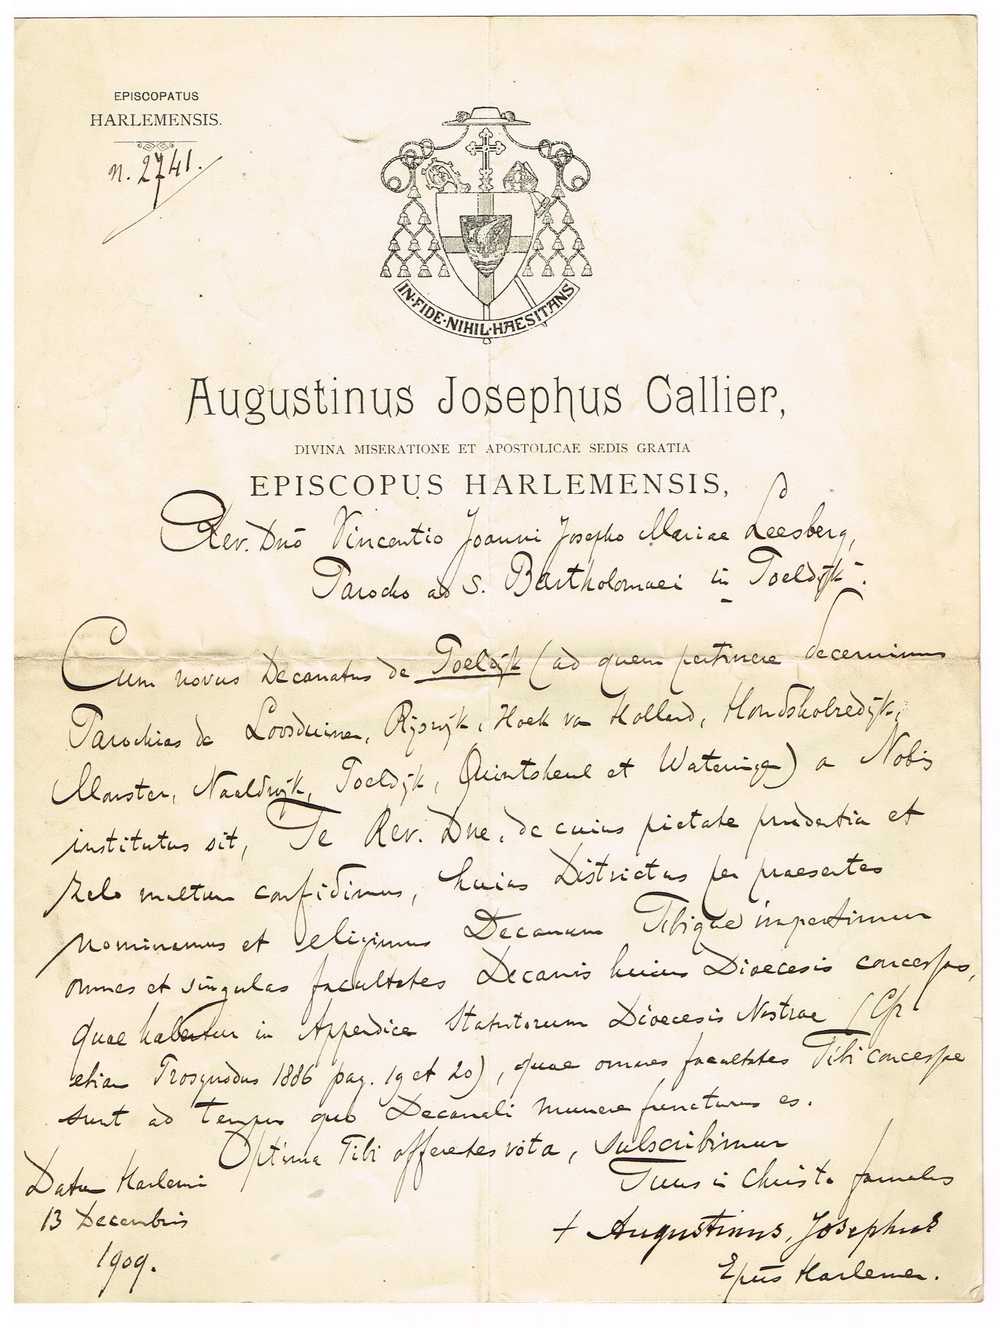 EPISCOPATUS
HARLEMENSIS.
n. 2741.
IN·FIDE·NIHIL·HAESITANS
Augustinus Josephus Callier,
DIVINA MISERATIONE ET APOSTOLICAE SEDIS GRATIA
EPISCOPUS HARLEMENSIS,
Rev. Dnō Vincentio Joanni Josepho Mariae Leesberg,
Parocho ad S. Bartholomaei in Poeldijk.
Cum novus Decanatus de Poeldijk (ad quem pertinere decernimus
Parochias de Loosduinen, Rijswijk, Hoek van Holland, Hondsholredijk,
Monster, Naaldwijk, Poeldijk, Quintsheul et Wateringen) a Nobis
institutus sit, Te Rev. Dne, de cuius pietate prudentia et
zelo multum confidimus, huius Districtus per praesentes
nominamus et eligimus Decanum Tibique impertimur
omnes et singulas facultates Decanis huius Dioecesis concessas,
quae habentur in Appendice Statutorum Dioecesis Nostrae (Cfr
etiam Prosynodus 1886 pag. 19 et 20), quae omnes facultates Tibi concessae
sunt ad tempus quo Decanali munere functurus es.
Optima Tibi offerentes vota, subscribimur
Datum Harlemi
13 Decembris
1909.
Tuus in Christo famulus
+ Augustinus Josephus
Epūs Harlemen.